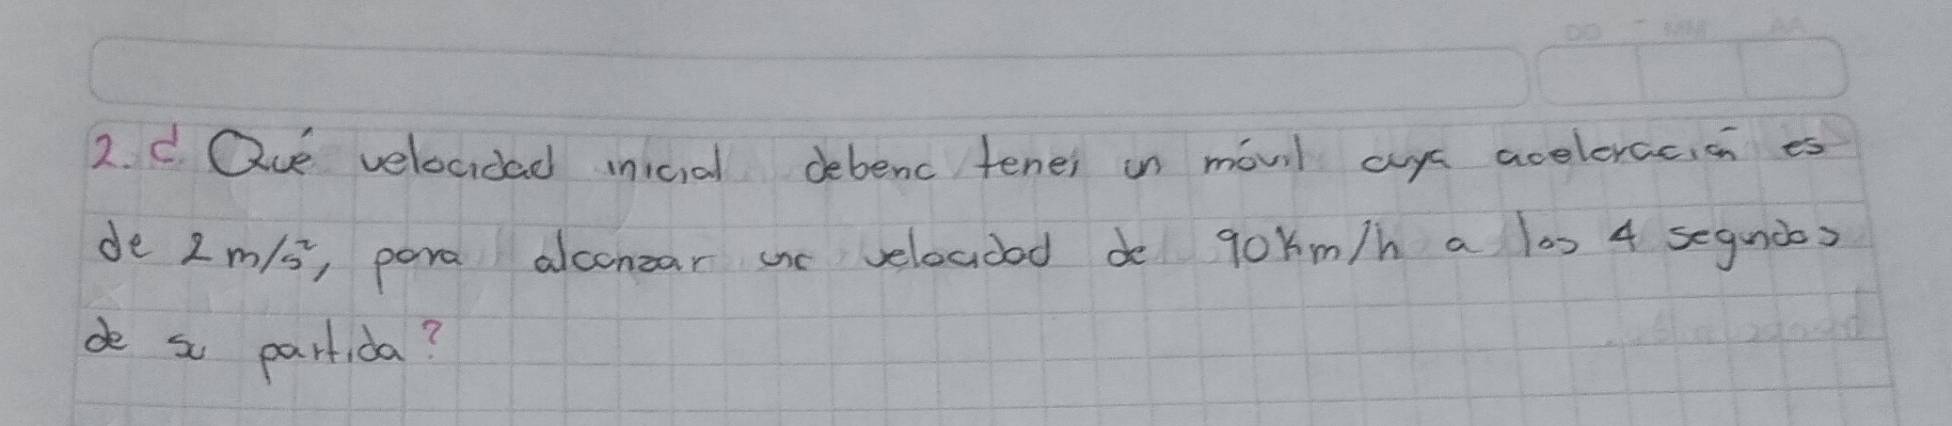 DD MM AA
2. ¿ Qué velocidad inicial debería tener un móvil cuya aceleración es
de 2 m/s², para alcanzar una velocidad de 90 Km/h a los 4 segundos
de su partida?